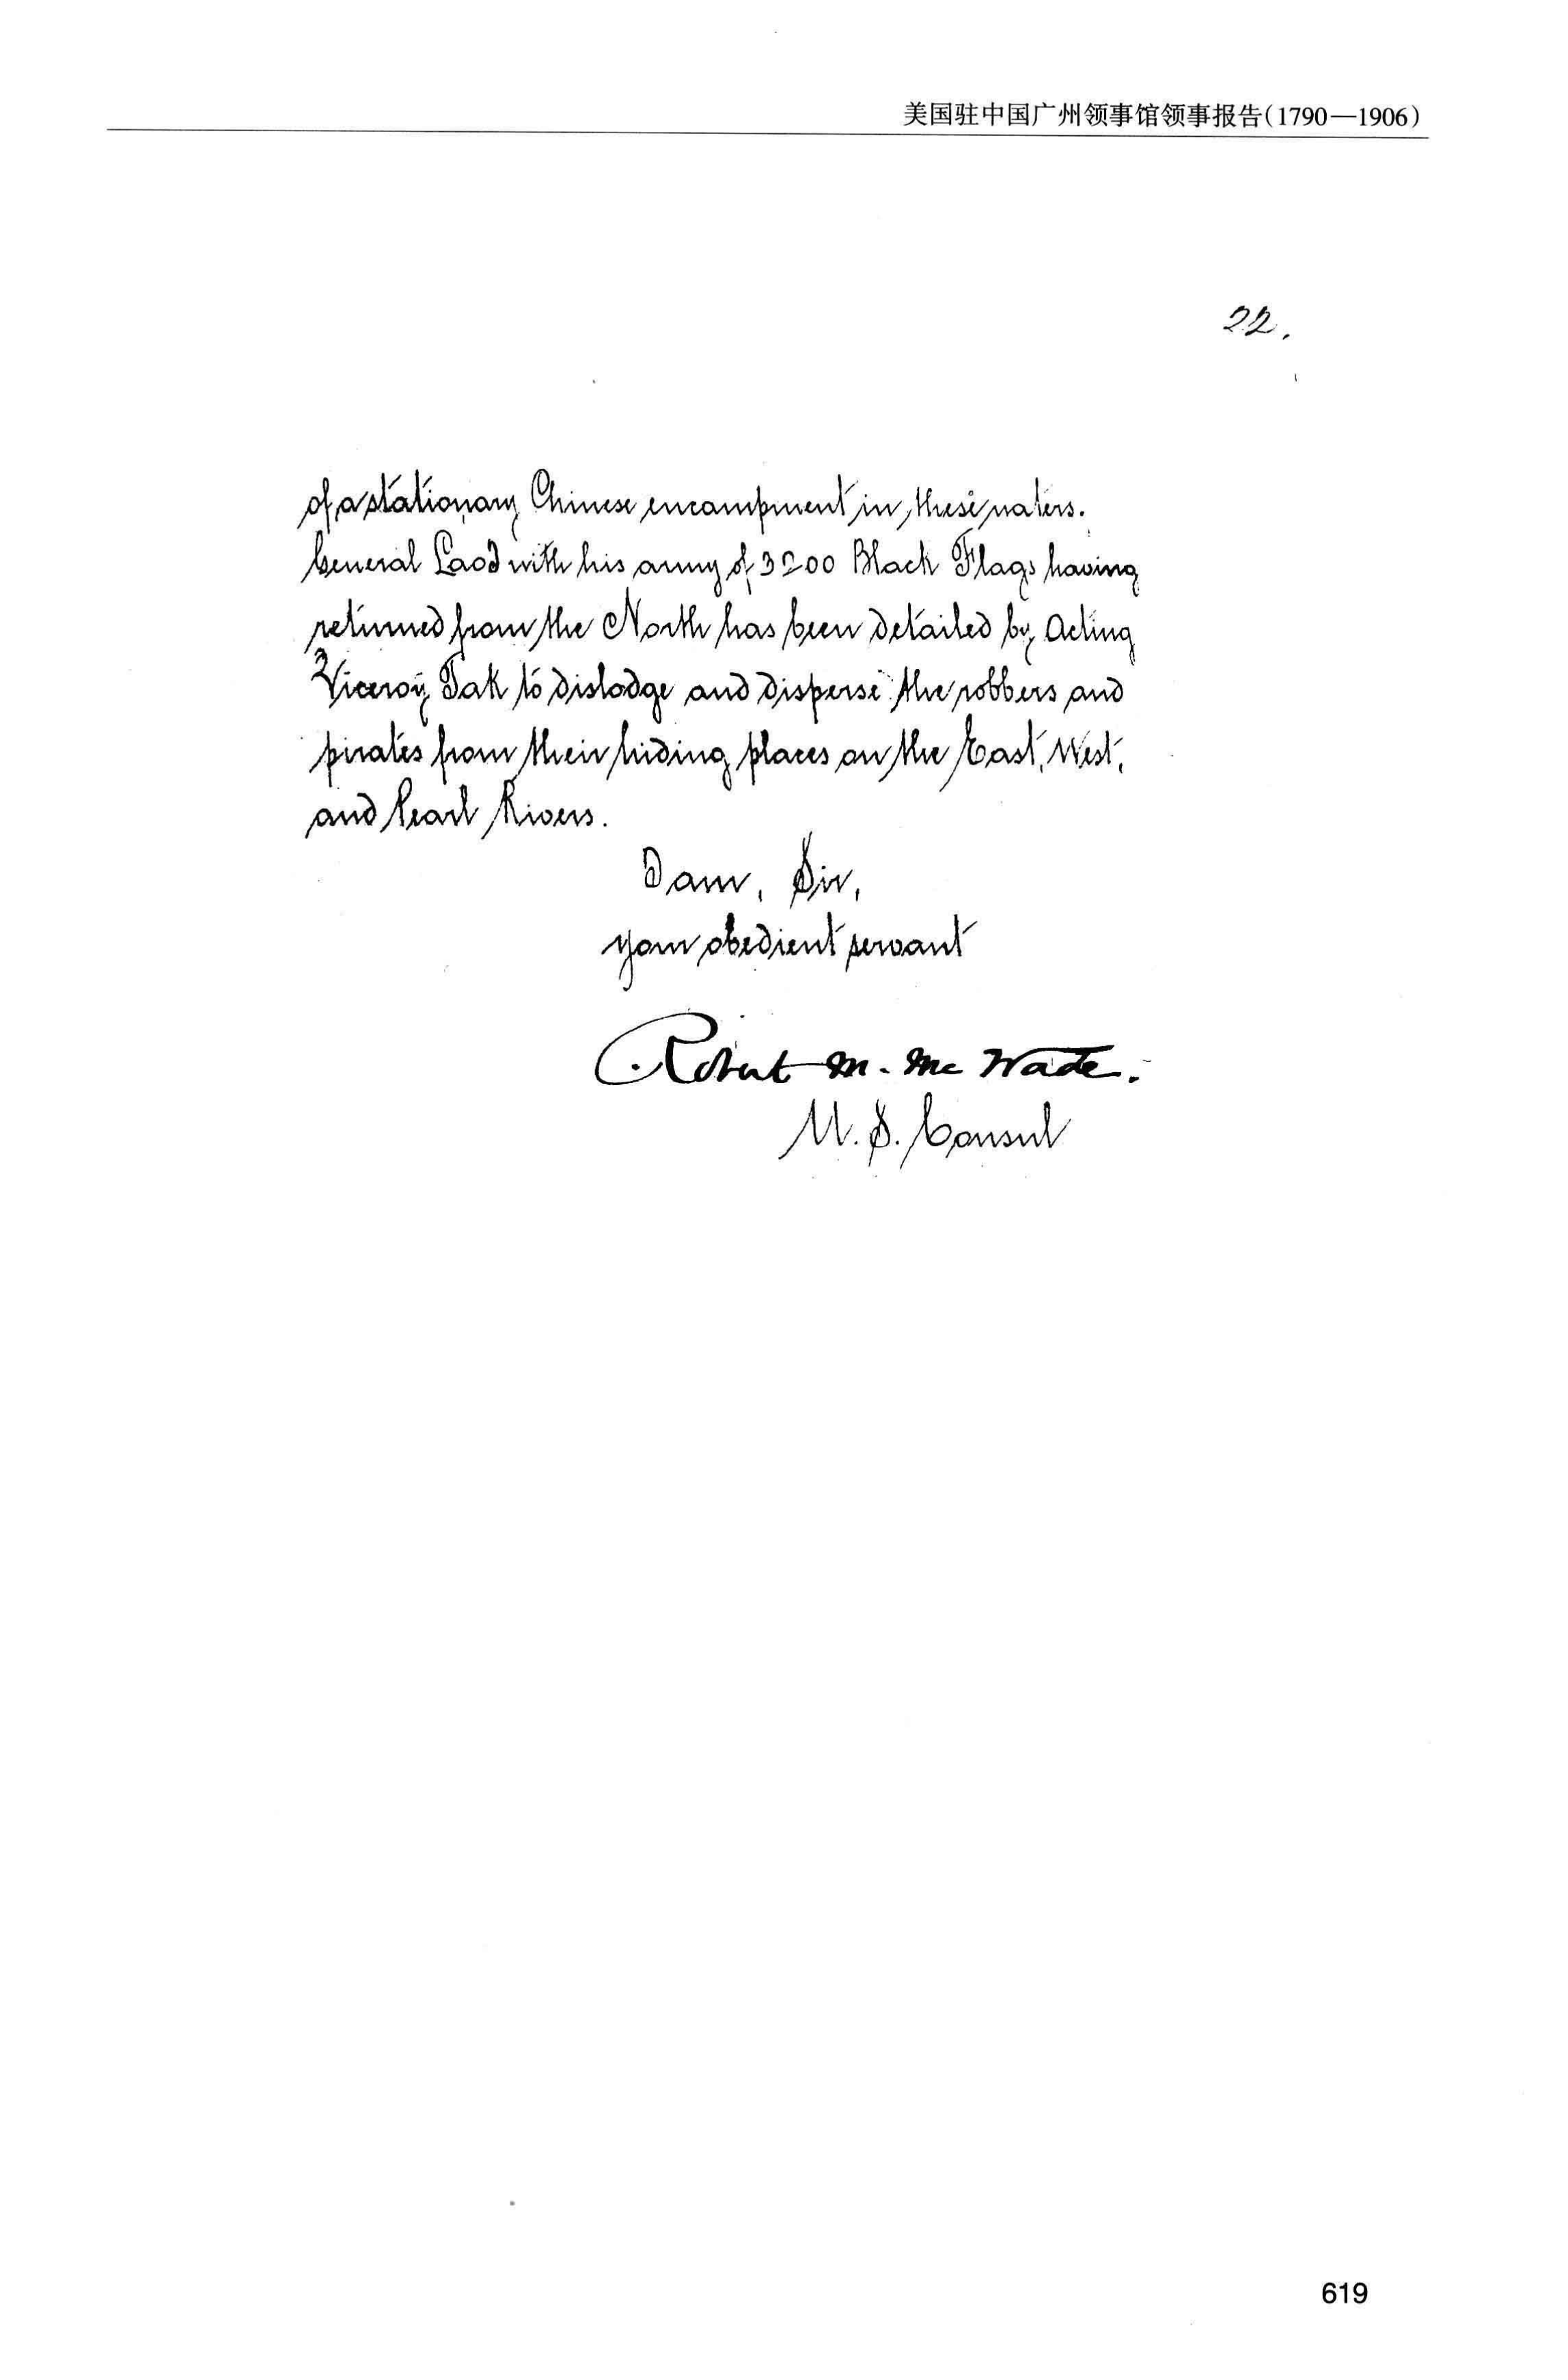 美国驻中国广州领事馆领事报告(1790—1906)
22.
of a stationary Chinese encampment in these waters.
General Laod with his army of 3200 Black Flags having
returned from the North has been detailed by Acting
Viceroy Tak to dislodge and disperse the robbers and
pirates from their hiding places on the East, West,
and Pearl Rivers.
I am, Sir,
your obedient servant
Robert M. McWade.
U. S. Consul
619